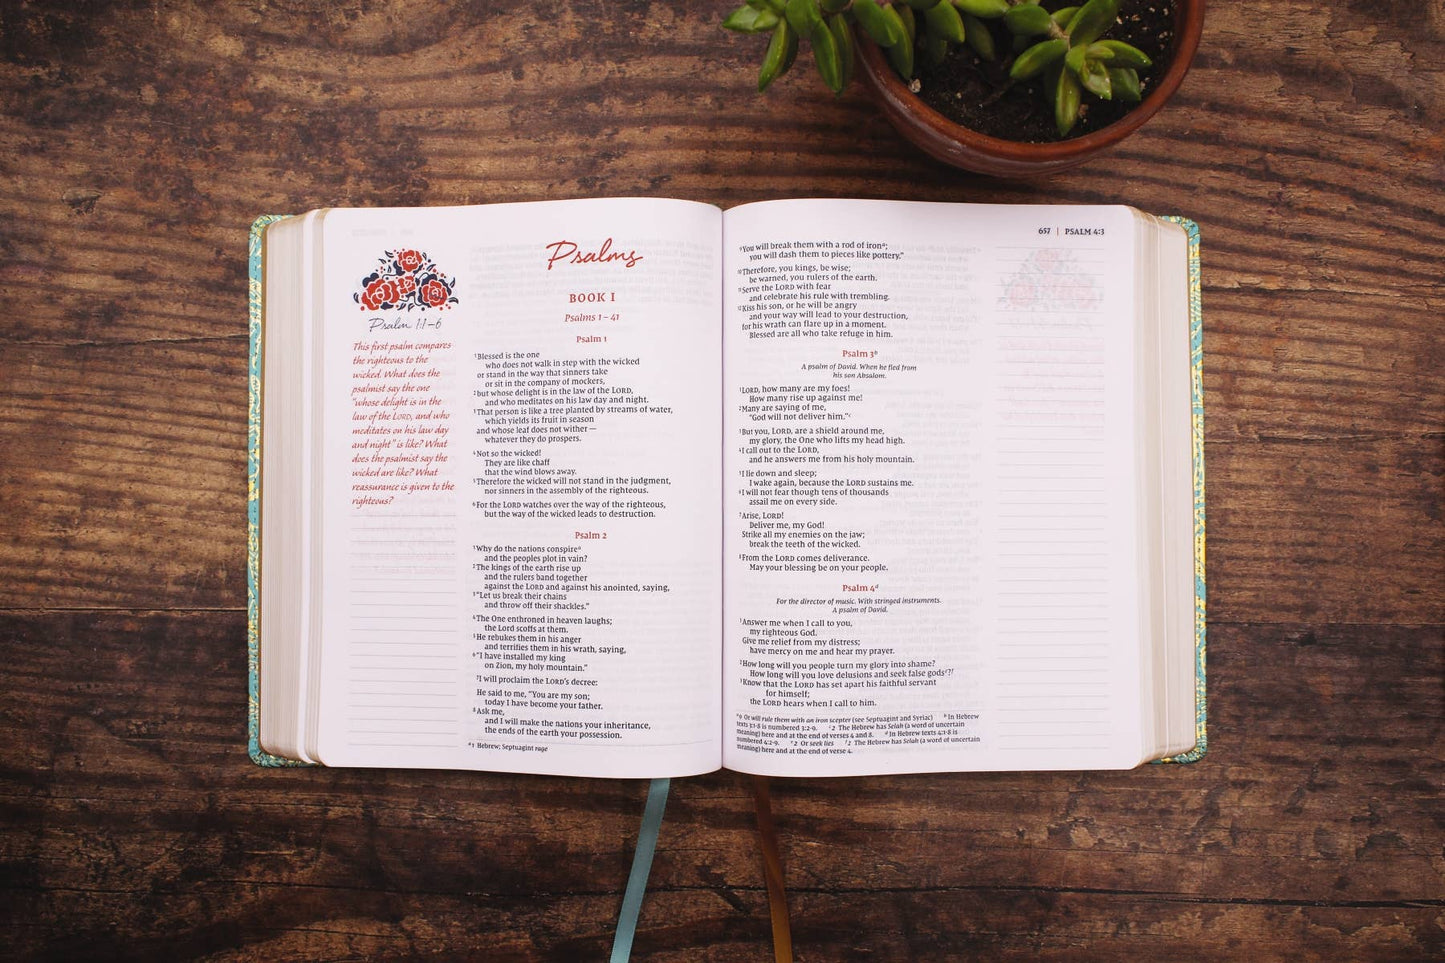 Psalm 1:1–6
This first psalm compares
the righteous to the
wicked. What does the
psalmist say the one
"whose delight is in the
law of the LORD, and who
meditates on his law day
and night" is like? What
does the psalmist say the
wicked are like? What
reassurance is given to the
righteous?
Psalms
BOOK I
Psalms 1–41
Psalm 1
1Blessed is the one
who does not walk in step with the wicked
or stand in the way that sinners take
or sit in the company of mockers,
2but whose delight is in the law of the LORD,
and who meditates on his law day and night.
3That person is like a tree planted by streams of water,
which yields its fruit in season
and whose leaf does not wither—
whatever they do prospers.
4Not so the wicked!
They are like chaff
that the wind blows away.
5Therefore the wicked will not stand in the judgment,
nor sinners in the assembly of the righteous.
6For the LORD watches over the way of the righteous,
but the way of the wicked leads to destruction.
Psalm 2
1Why do the nations conspirea
and the peoples plot in vain?
2The kings of the earth rise up
and the rulers band together
against the LORD and against his anointed, saying,
3"Let us break their chains
and throw off their shackles."
4The One enthroned in heaven laughs;
the Lord scoffs at them.
5He rebukes them in his anger
and terrifies them in his wrath, saying,
6"I have installed my king
on Zion, my holy mountain."
7I will proclaim the LORD's decree:
He said to me, "You are my son;
today I have become your father.
8Ask me,
and I will make the nations your inheritance,
the ends of the earth your possession.
a1 Hebrew; Septuagint rage
657 | PSALM 4:3
9You will break them with a rod of irona;
you will dash them to pieces like pottery."
10Therefore, you kings, be wise;
be warned, you rulers of the earth.
11Serve the LORD with fear
and celebrate his rule with trembling.
12Kiss his son, or he will be angry
and your way will lead to your destruction,
for his wrath can flare up in a moment.
Blessed are all who take refuge in him.
Psalm 3b
A psalm of David. When he fled from
his son Absalom.
1LORD, how many are my foes!
How many rise up against me!
2Many are saying of me,
"God will not deliver him."c
3But you, LORD, are a shield around me,
my glory, the One who lifts my head high.
4I call out to the LORD,
and he answers me from his holy mountain.
5I lie down and sleep;
I wake again, because the LORD sustains me.
6I will not fear though tens of thousands
assail me on every side.
7Arise, LORD!
Deliver me, my God!
Strike all my enemies on the jaw;
break the teeth of the wicked.
8From the LORD comes deliverance.
May your blessing be on your people.
Psalm 4d
For the director of music. With stringed instruments.
A psalm of David.
1Answer me when I call to you,
my righteous God.
Give me relief from my distress;
have mercy on me and hear my prayer.
2How long will you people turn my glory into shame?
How long will you love delusions and seek false godse?f
3Know that the LORD has set apart his faithful servant
for himself;
the LORD hears when I call to him.
a9 Or will rule them with an iron scepter (see Septuagint and Syriac) b In Hebrew
texts 3:1-8 is numbered 3:2-9. c2 The Hebrew has Selah (a word of uncertain
meaning) here and at the end of verses 4 and 8. d In Hebrew texts 4:1-8 is
numbered 4:2-9. e2 Or seek lies f2 The Hebrew has Selah (a word of uncertain
meaning) here and at the end of verse 4.